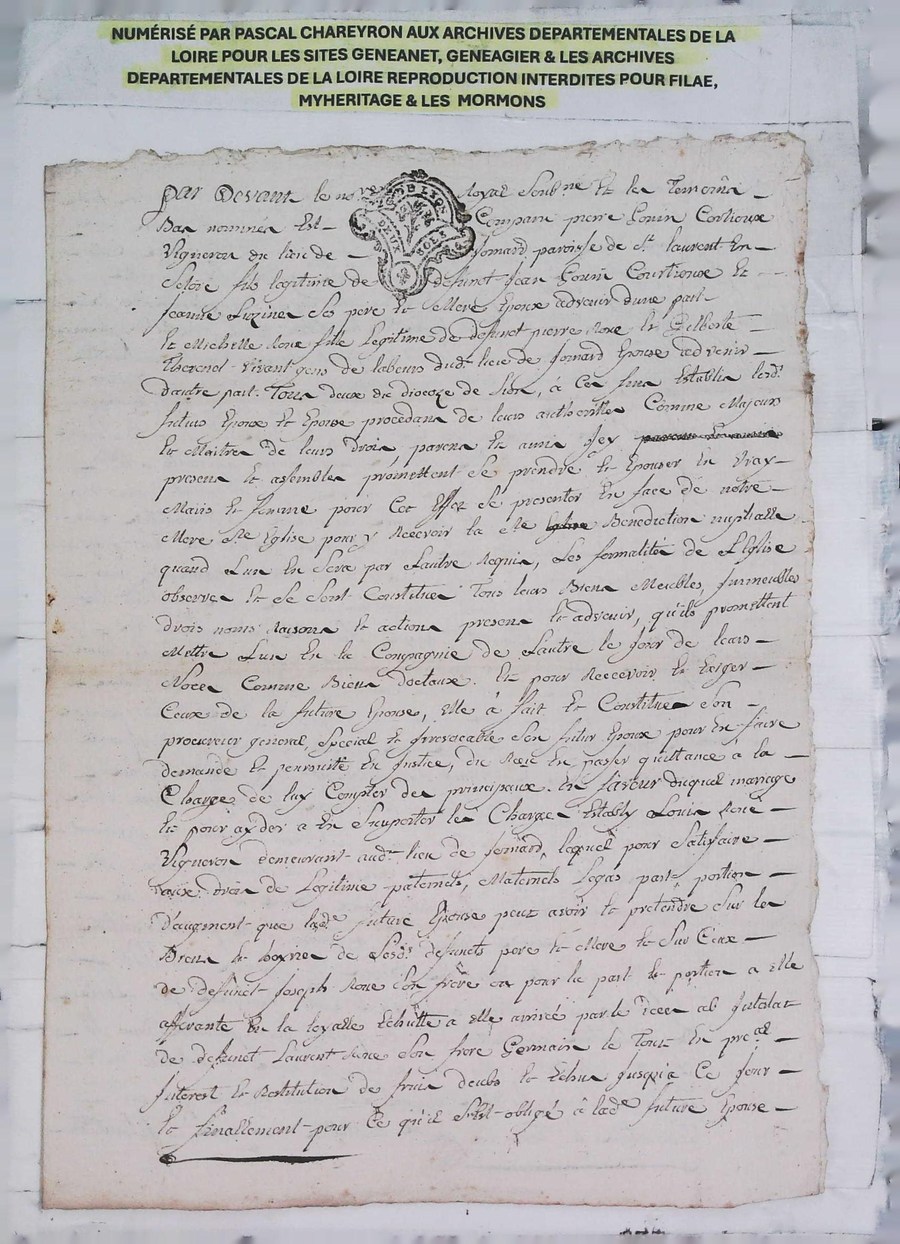 NUMÉRISÉ PAR PASCAL CHAREYRON AUX ARCHIVES DEPARTEMENTALES DE LA
LOIRE POUR LES SITES GENEANET, GENEAGIER & LES ARCHIVES
DEPARTEMENTALES DE LA LOIRE REPRODUCTION INTERDITES POUR FILAE,
MYHERITAGE & LES MORMONS
par Devant le no.re royal soub.ne Et les Temoins
Bas nommés Est Comparu pierre
DE LYON
DEUX SOLS
Vigneron du lieu de fomard paroisse de St. laurent En
fils legitime de deffunct Jean Et
Jeanne ses pere Et Mere Epoux advenir dune part
Et Michelle fille Legitime de deffunct pierre Et
vivant gens de labeurs dud. lieu de fomard Epouse advenir
dautre part. Tous deux du dioceze de Lion, à Ces fins Establis lesd.
futurs Epoux Et Epouse procedans de leurs authorittés Comme Majeurs
Et Maitres de leurs drois parens Et amis Icy
presens Et assemblés promettent se prendre Et Epouser En vray
Maris Et femme pour Cet Effet se presenter En face de notre
Mere Ste Eglise pour y Recevoir la Ste Benediction nuptialle
quand L'un En sera par Lautre Requis, Les formalités de L'Eglise
observées Et se sont Constitués Tous leurs Biens Meubles, Immeubles
drois noms Raisons Et actions presens Et advenir, qu'ils promettent
Mettre L'un En la Compagnie de Lautre le Jour de leurs
Noces Comme Biens doctaux. Et pour Recevoir Et Exiger
Ceux de la future Epouse, Elle à fait Et Constitué son
procureur general, special Et Irrevocable son futur Epoux pour En faire
demande Et poursuite En Justice, du Receu En passer quittance à la
Charge de luy Compter des principaux. En faveur duquel mariage
Et pour ayder a En Suporter les Charges Estably Louis
Vigneron demeurant aud. lieu de fomard, lequel pour Satisfaire
aux drois de Legitime paternels, Maternels Legas part, portion
d'augment que lad.e future Epouse peut avoir Et pretendre sur les
Biens Et hoyries de sesd.s deffuncts pere Et Mere Et sur Ceux
de deffunct Joseph son frere ou pour la part Et portion a Elle
afferante En la loyalle Echutte a Elle arrivée par le deces ab Intestat
de deffunct Laurent son frere Germain le Tout En
Interest Et Restitution de fruis deubs Et Echus Jusqu'à Ce Jour
Et finallement pour Ce qu'il s'est obligé à lad.e future Epouse